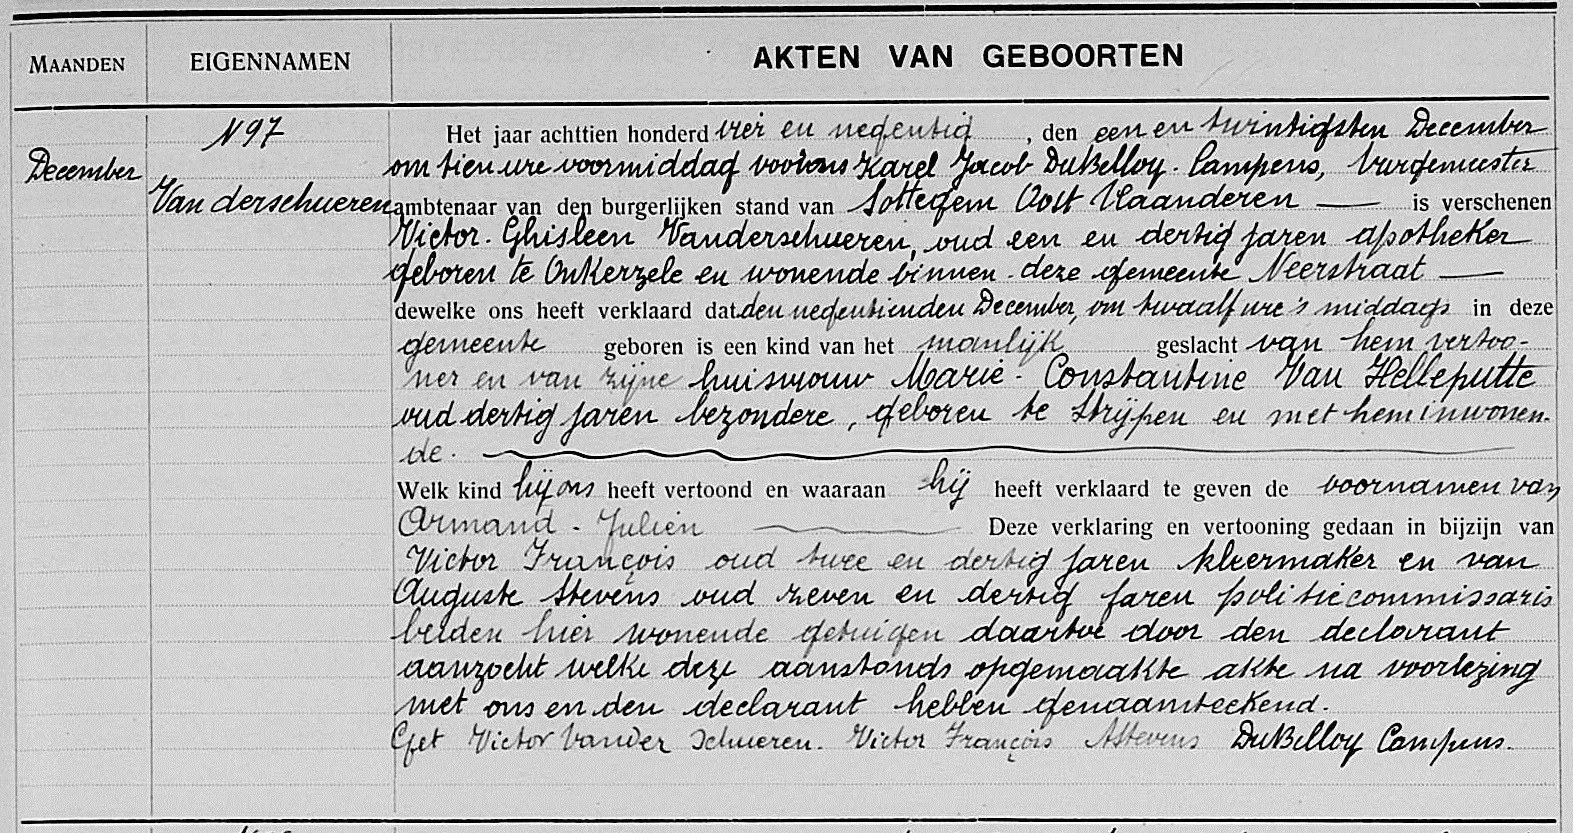 MAANDEN EIGENNAMEN AKTEN VAN GEBOORTEN
N 97
December
Vanderschueren
Het jaar achttien honderd vier en negentig, den een en twintigsten December
om tien ure voormiddag voor ons Karel Jacob DuBelloy-Campens, burgemeester
ambtenaar van den burgerlijken stand van Sottegem Oost Vlaanderen — is verschenen
Victor-Ghisleen Vanderschueren, oud een en dertig jaren apotheker
geboren te Onkerzele en wonende binnen deze gemeente Neerstraat —
dewelke ons heeft verklaard dat den negentienden December, om twaalf ure 's middags in deze
gemeente geboren is een kind van het manlijk geslacht van hem vertoo-
ner en van zijne huisvrouw Marie-Constantine Van Helleputte
oud dertig jaren bezondere, geboren te Strijpen en met hem inwonen-
de.
Welk kind hij ons heeft vertoond en waaraan hij heeft verklaard te geven de voornamen van
Armand-Julien Deze verklaring en vertooning gedaan in bijzijn van
Victor François oud twee en dertig jaren kleermaker en van
Auguste Stevens oud zeven en dertig jaren politiecommissaris
beiden hier wonende getuigen daartoe door den declarant
aanzocht welke deze aanstonds opgemaakte akte na voorlezing
met ons en den declarant hebben genaamteekend.
Get Victor Vander Schueren. Victor François AStevens DuBelloy Campens.